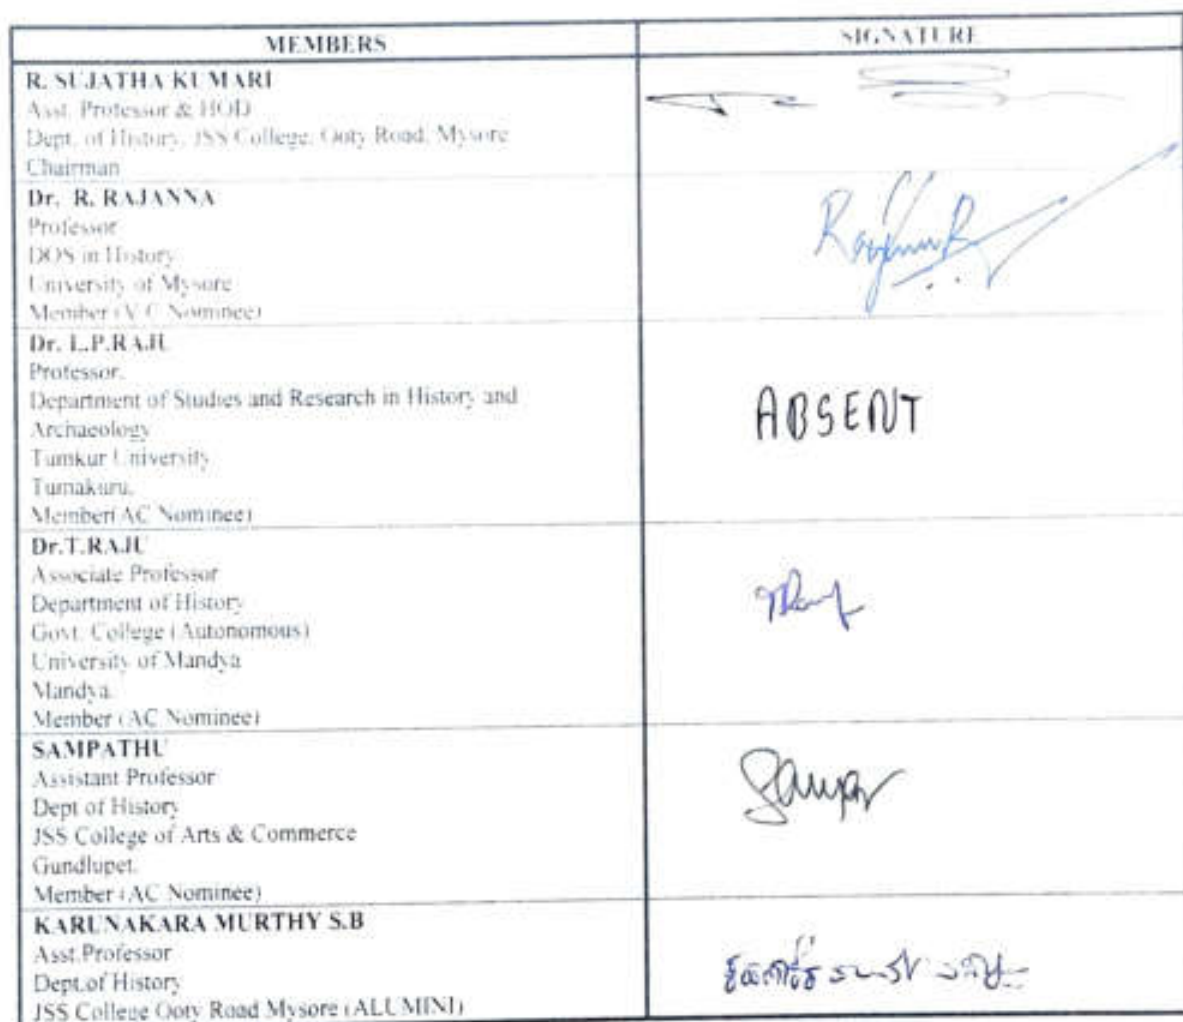 MEMBERS
SIGNATURE
R. SUJATHA KUMARI
Asst. Professor & HOD
Dept. of History, JSS College, Ooty Road, Mysore
Chairman
Dr. R. RAJANNA
Professor
DOS in History
University of Mysore
Member (V C Nominee)
Dr. L.P.RAJU
Professor.
Department of Studies and Research in History and
Archaeology
Tumkur University
Tumakuru.
Member( AC Nominee)
ABSENT
Dr.T.RAJU
Associate Professor
Department of History
Govt. College (Autonomous)
University of Mandya
Mandya.
Member (AC Nominee)
SAMPATHU
Assistant Professor
Dept of History
JSS College of Arts & Commerce
Gundlupet.
Member (AC Nominee)
KARUNAKARA MURTHY S.B
Asst.Professor
Dept.of History
JSS College Ooty Road Mysore (ALUMINI)